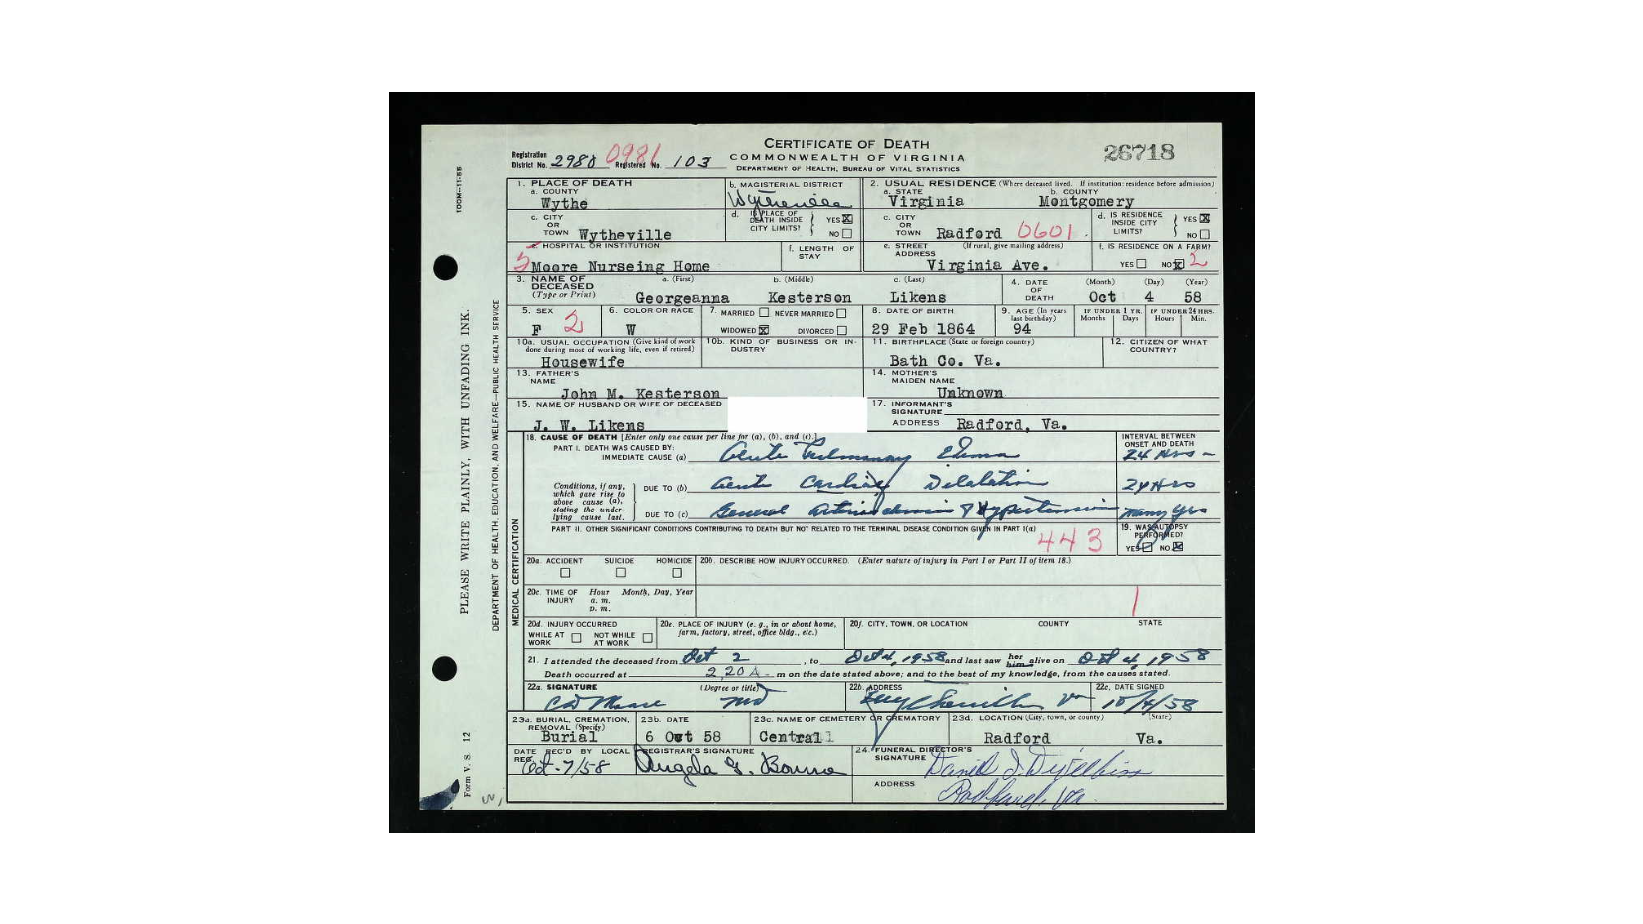 CERTIFICATE OF DEATH
COMMONWEALTH OF VIRGINIA
DEPARTMENT OF HEALTH, BUREAU OF VITAL STATISTICS
26718
Registration District No. 2980 0981 Registered No. 103
1. PLACE OF DEATH
a. COUNTY
Wythe
b. MAGISTERIAL DISTRICT
Wytheville
2. USUAL RESIDENCE (Where deceased lived. If institution: residence before admission)
a. STATE
Virginia
b. COUNTY
Montgomery
c. CITY OR TOWN Wytheville
d. IS PLACE OF DEATH INSIDE CITY LIMITS? YES ☒ NO ☐
c. CITY OR TOWN Radford 0601
d. IS RESIDENCE INSIDE CITY LIMITS? YES ☒ NO ☐
e. HOSPITAL OR INSTITUTION
5 Moore Nurseing Home
f. LENGTH OF STAY
e. STREET ADDRESS (If rural, give mailing address)
Virginia Ave.
f. IS RESIDENCE ON A FARM?
YES ☐ NO ☒ 2
3. NAME OF DECEASED (Type or Print)
a. (First) b. (Middle) c. (Last)
Georgeanna Kesterson Likens
4. DATE OF DEATH (Month) (Day) (Year)
Oct 4 58
5. SEX
F 2
6. COLOR OR RACE
W
7. MARRIED ☐ NEVER MARRIED ☐
WIDOWED ☒ DIVORCED ☐
8. DATE OF BIRTH
29 Feb 1864
9. AGE (In years last birthday)
94
IF UNDER 1 YR. Months Days
IF UNDER 24 HRS. Hours Min.
10a. USUAL OCCUPATION (Give kind of work done during most of working life, even if retired)
Housewife
10b. KIND OF BUSINESS OR INDUSTRY
11. BIRTHPLACE (State or foreign country)
Bath Co. Va.
12. CITIZEN OF WHAT COUNTRY?
13. FATHER'S NAME
John M. Kesterson
14. MOTHER'S MAIDEN NAME
Unknown
15. NAME OF HUSBAND OR WIFE OF DECEASED
J. W. Likens
17. INFORMANT'S SIGNATURE
ADDRESS Radford, Va.
18. CAUSE OF DEATH [Enter only one cause per line for (a), (b), and (c).]
INTERVAL BETWEEN ONSET AND DEATH
PART I. DEATH WAS CAUSED BY:
IMMEDIATE CAUSE (a) Acute Pulmonary Edema 24 Hrs
Conditions, if any, which gave rise to above cause (a), stating the under lying cause last.
DUE TO (b) Acute Cardiac Dilatation 24 Hrs
DUE TO (c) General Arteriosclerosis & Hypertension many yrs
PART II. OTHER SIGNIFICANT CONDITIONS CONTRIBUTING TO DEATH BUT NOT RELATED TO THE TERMINAL DISEASE CONDITION GIVEN IN PART I(a)
443
19. WAS AUTOPSY PERFORMED?
YES NO ☒
20a. ACCIDENT SUICIDE HOMICIDE
☐ ☐ ☐
20b. DESCRIBE HOW INJURY OCCURRED. (Enter nature of injury in Part I or Part II of item 18.)
20c. TIME OF INJURY Hour a. m. p. m. Month, Day, Year
1
20d. INJURY OCCURRED
WHILE AT WORK ☐ NOT WHILE AT WORK ☐
20e. PLACE OF INJURY (e. g., in or about home, farm, factory, street, office bldg., etc.)
20f. CITY, TOWN, OR LOCATION COUNTY STATE
21. I attended the deceased from Oct 2, to Oct 4, 1958 and last saw her him alive on Oct 4, 1958
Death occurred at 2,20 A m on the date stated above; and to the best of my knowledge, from the causes stated.
22a. SIGNATURE (Degree or title)
CW Moore MD
22b. ADDRESS
Wytheville Va
22c. DATE SIGNED
10/4/58
23a. BURIAL, CREMATION, REMOVAL (Specify)
Burial
23b. DATE
6 Oct 58
23c. NAME OF CEMETERY OR CREMATORY
Central
23d. LOCATION (City, town, or county) (State)
Radford Va.
DATE REC'D BY LOCAL REG.
Oct-7/58
REGISTRAR'S SIGNATURE
Angela G.
24. FUNERAL DIRECTOR'S SIGNATURE
Daniel
ADDRESS
Radford, Va.
MEDICAL CERTIFICATION
100M-11-56
PLEASE WRITE PLAINLY, WITH UNFADING INK.
DEPARTMENT OF HEALTH, EDUCATION, AND WELFARE—PUBLIC HEALTH SERVICE
Form V. S. 12